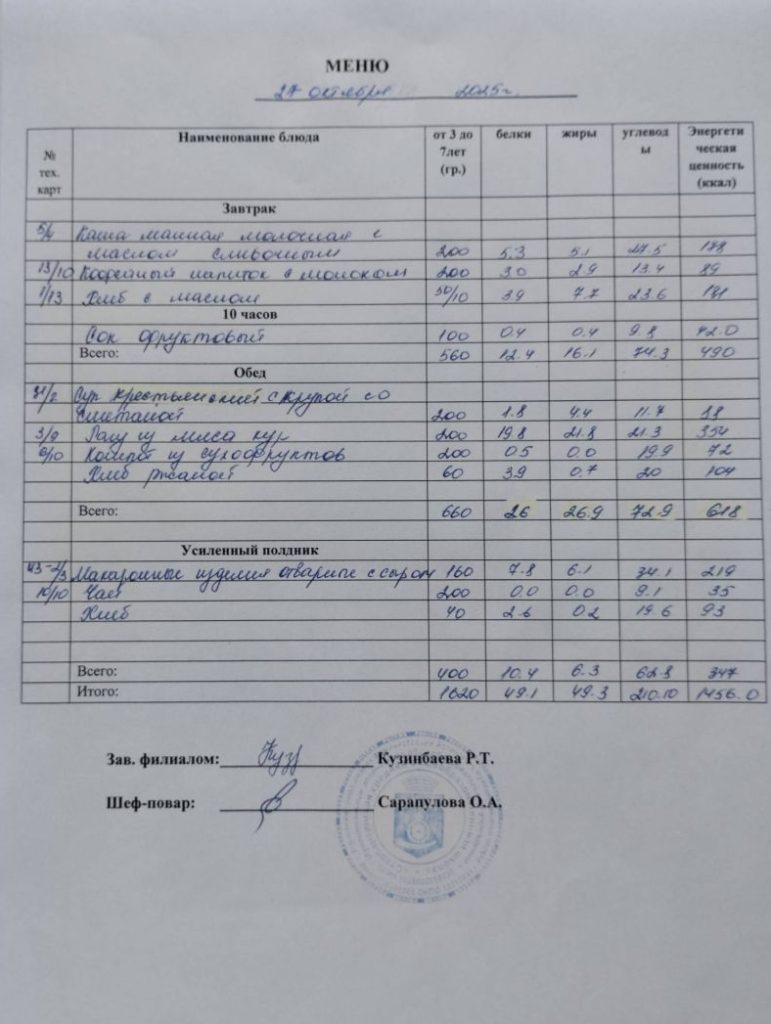 МЕНЮ
27 октября 2025г.
№ тех. карт Наименование блюда от 3 до 7лет (гр.) белки жиры углевод ы Энергети ческая ценность (ккал)
Завтрак
5/4 Каша манная молочная с
маслом сливочным 200 5.3 5.1 27.5 178
13/10 Кофейный напиток с молоком 200 3.0 2.9 13.4 89
1/13 Хлеб с маслом 50/10 3.9 7.7 23.6 181
10 часов
Сок фруктовый 100 0.4 0.4 9.8 42.0
Всего: 560 12.4 16.1 74.3 490
Обед
31/2 Суп крестьянский с крупой со
сметаной 200 1.8 4.4 11.7 88
3/9 Рагу из мяса кур 200 19.8 21.8 21.3 354
6/10 Компот из сухофруктов 200 0.5 0.0 19.9 72
Хлеб ржаной 60 3.9 0.7 20 104
Всего: 660 26 26.9 72.9 618
Усиленный полдник
43-2/3 Макаронные изделия отварные с сыром 160 7.8 6.1 34.1 219
10/10 Чай 200 0.0 0.0 9.1 35
Хлеб 40 2.6 0.2 19.6 93
Всего: 400 10.4 6.3 62.8 347
Итого: 1620 49.1 49.3 210.10 1456.0
Зав. филиалом: Кузинбаева Р.Т.
Шеф-повар: Сарапулова О.А.